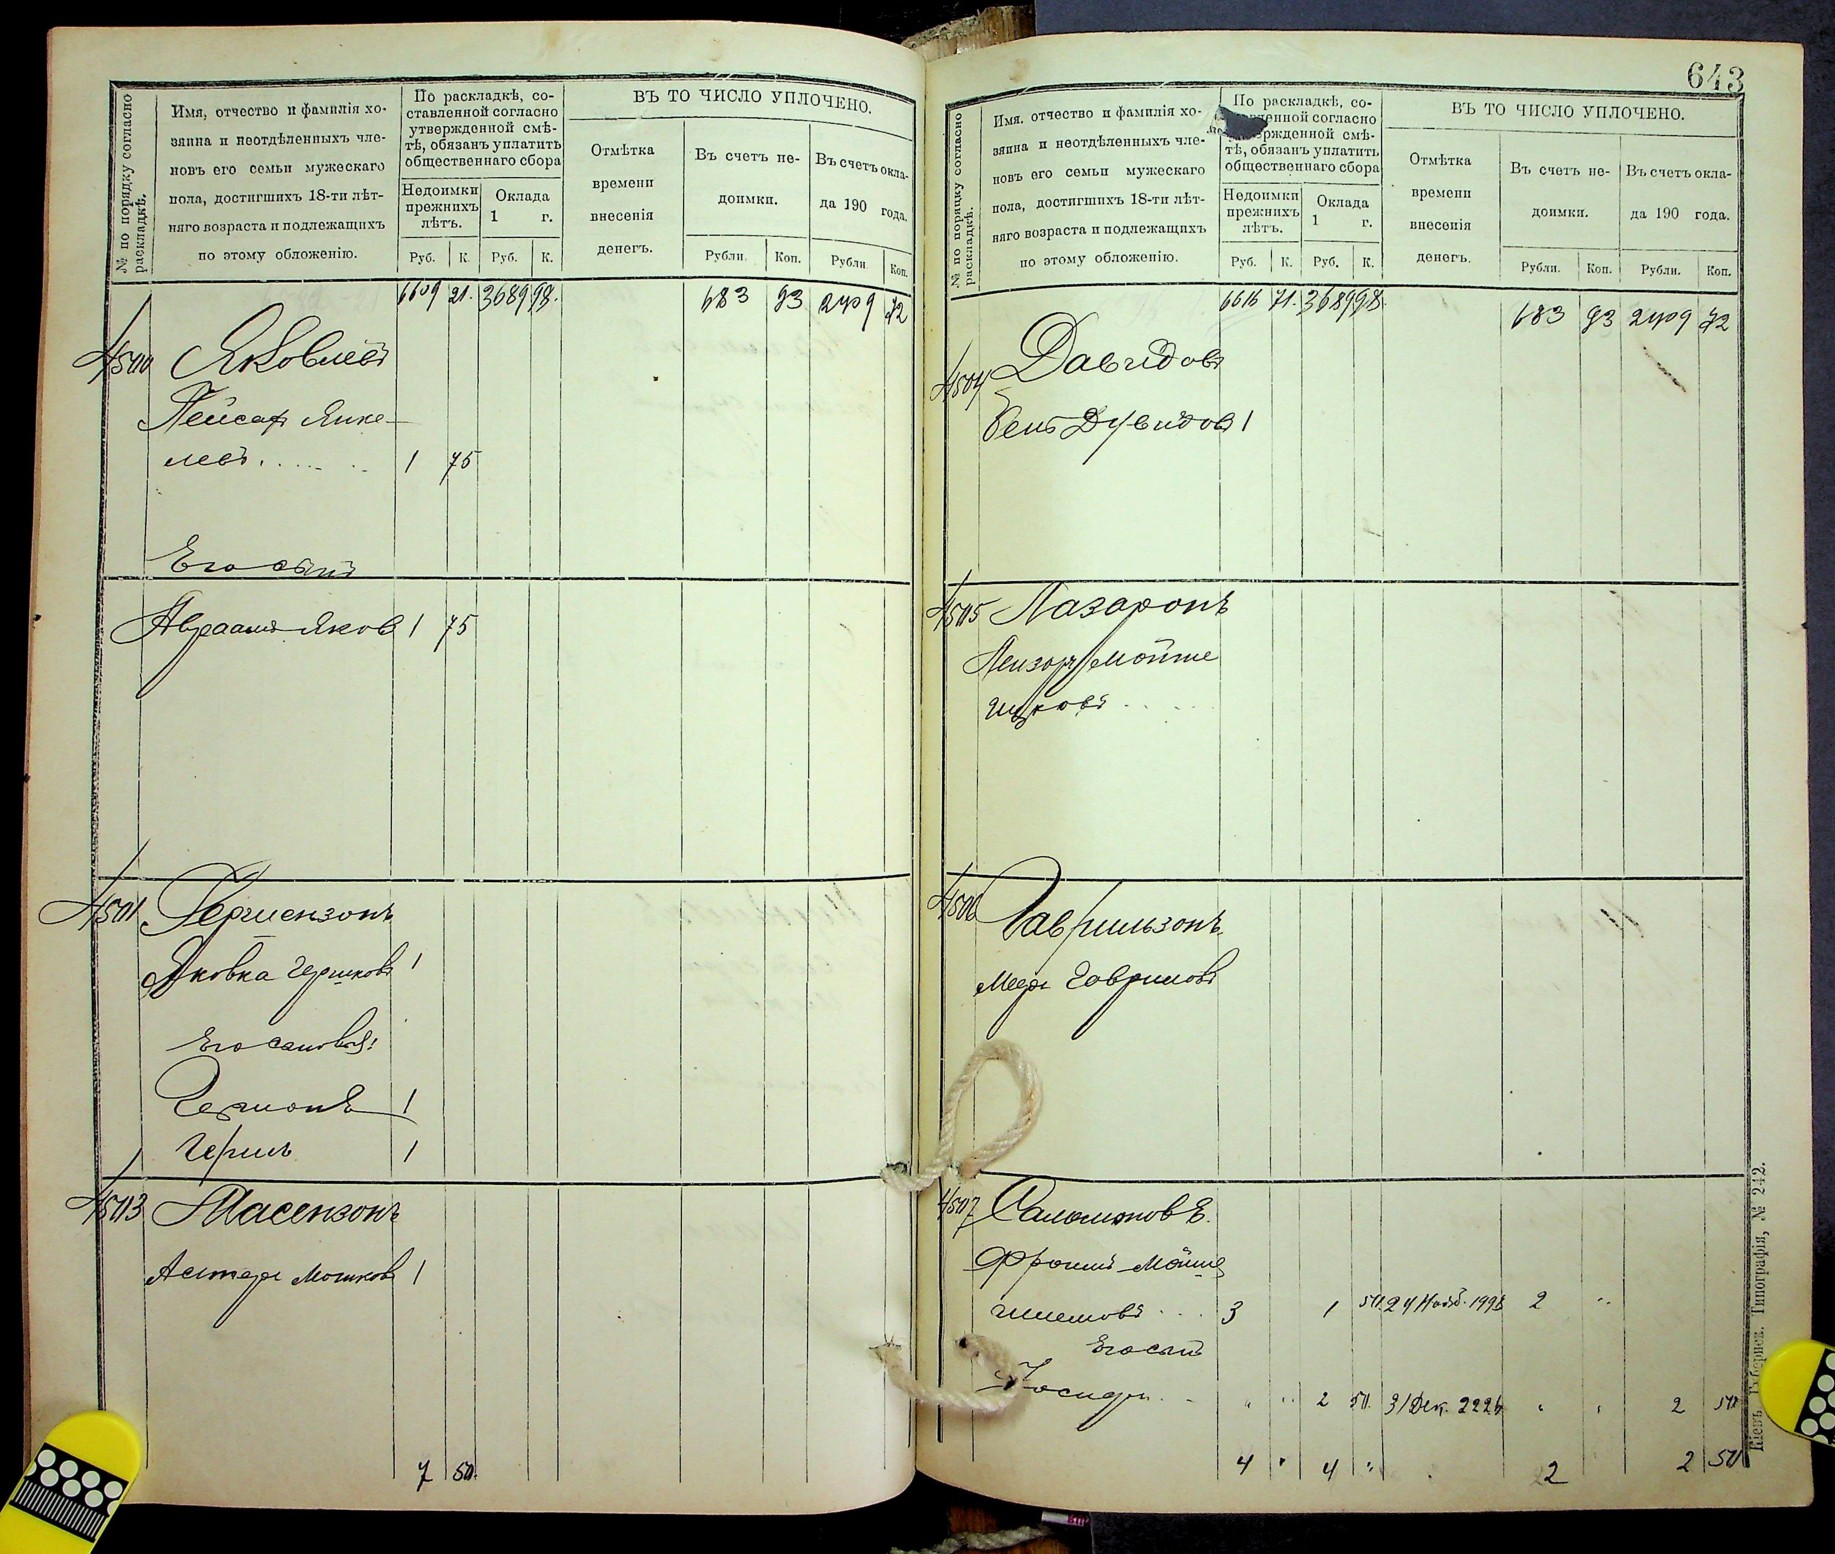 № по порядку согласно раскладкѣ.
Имя, отчество и фамилія хо-
зяина и неотдѣленныхъ чле-
новъ его семьи мужескаго
пола, достигшихъ 18-ти лѣт-
няго возраста и подлежащихъ
по этому обложенію.
По раскладкѣ, со-
ставленной согласно
утвержденной смѣ-
тѣ, обязанъ уплатить
общественнаго сбора
Недоимки
прежнихъ
лѣтъ.
Оклада
1 г.
Руб. К. Руб. К.
ВЪ ТО ЧИСЛО УПЛОЧЕНО.
Отмѣтка
времени
внесенія
денегъ.
Въ счетъ не-
доимки.
Въ счетъ окла-
да 190 года.
Рубли Коп. Рубли Коп.
6609 21. 3689 98. 683 93 2409 72
4500 Яковлевъ
Пейсах Янке-
левъ 1 75
Его сынъ
Авраамъ Яков 1 75
4501 Гершензонъ
Яковка Гершковъ 1
Его сыновья:
Гершонъ 1
Герш 1
4503 Масензонъ
Мошковъ 1
7 50.
643
№ по порядку согласно раскладкѣ.
Имя, отчество и фамилія хо-
зяина и неотдѣленныхъ чле-
новъ его семьи мужескаго
пола, достигшихъ 18-ти лѣт-
няго возраста и подлежащихъ
по этому обложенію.
По раскладкѣ, со-
ленной согласно
вержденной смѣ-
тѣ, обязанъ уплатить
общественнаго сбора
Недоимки
прежнихъ
лѣтъ.
Оклада
1 г.
Руб. К. Руб. К.
ВЪ ТО ЧИСЛО УПЛОЧЕНО.
Отмѣтка
времени
внесенія
денегъ.
Въ счетъ не-
доимки.
Въ счетъ окла-
да 190 года.
Рубли. Коп. Рубли. Коп.
6616 71. 3689 98. 683 93 2409 72
4504 Давидовъ
Бень Дувидов 1
4505 Лазаронъ
Лейзор Мойше
4506 Гаврильзонъ
Меер Гавриловъ
4507 Саломоновъ.
Фроимъ Мойше
3 1 50. 24 Нояб. 2
Его сынъ
2 50. 31 Дек. 2226 2 50
4 4 2 2 50
Кіевъ. Губернск. Типографія, № 242.